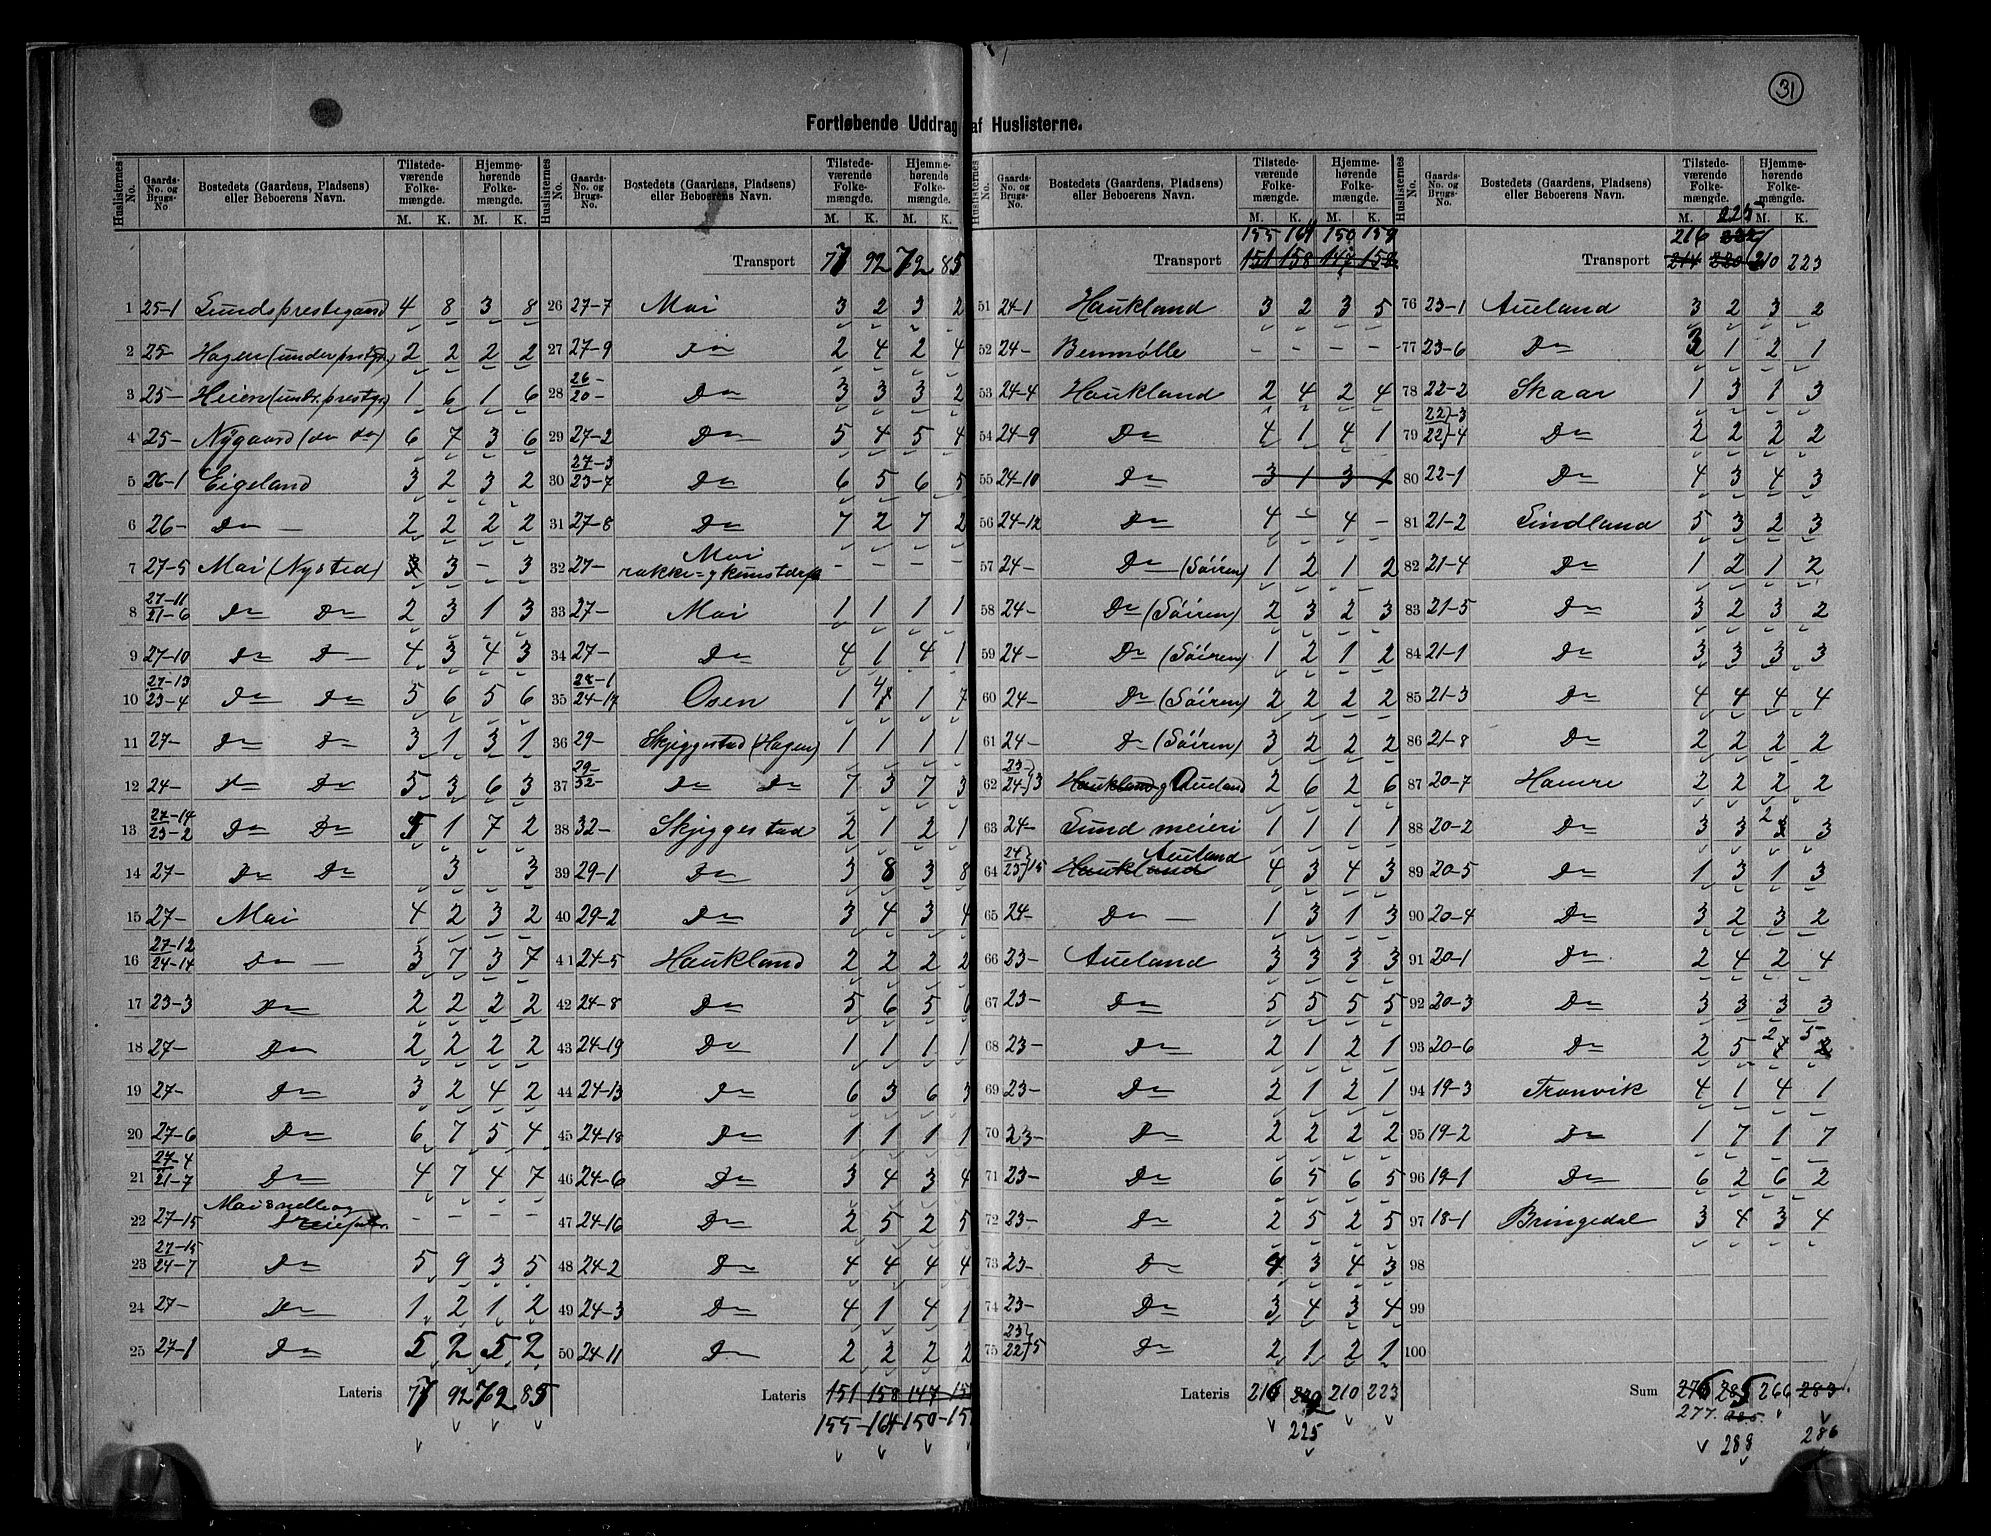 31
Fortløbende Uddrag af Huslisterne.
Huslisternes No. | Gaards-No. og Brugs-No. | Bostedets (Gaardens, Pladsens) eller Beboerens Navn. | Tilstedeværende Folkemængde. M. K. | Hjemmehørende Folkemængde. M. K.
1 25-1 Lundsprestegaard 4 8 3 8
2 25- Hagen (under prstg.) 2 2 2 2
3 25- Heien (undr. prestg.) 1 6 1 6
4 25- Nygaard (do do) 6 7 3 6
5 26-1 Eigeland 3 2 3 2
6 26- Do - 2 2 2 2
7 27-5 Moi (Nysted) 3 3 - 3
8 27-11 21-6 Do Do 2 3 1 3
9 27-10 Do Do 4 3 4 3
10 27-13 23-4 Do Do 5 6 5 6
11 27- Do Do 3 1 3 1
12 24- Do Do 5 3 6 3
13 27-14 23-2 Do Do 5 1 7 2
14 27- Do Do 3 3
15 27- Moi 4 2 3 2
16 27-12 24-14 Do - 3 7 3 7
17 23-3 Do 2 2 2 2
18 27- Do 2 2 2 2
19 27- Do 3 2 4 2
20 27-6 Do 6 7 5 4
21 27-4 21-7 Do 4 7 4 7
22 27-15 - - - -
23 27-15 24-7 Do 5 9 3 5
24 27- Do 1 2 1 2
25 27-1 Do 5 2 5 2
Lateris 77 92 72 85
Huslisternes No. | Gaards-No. og Brugs-No. | Bostedets (Gaardens, Pladsens) eller Beboerens Navn. | Tilstedeværende Folkemængde. M. K. | Hjemmehørende Folkemængde. M. K.
Transport 77 92 72 85
26 27-7 Moi 3 2 3 2
27 27-9 Do 2 4 2 4
28 26- 20- Do 3 3 3 2
29 27-2 Do 5 4 5 4
30 27-3 23-7 Do 6 5 6 5
31 27-8 Do 7 2 7 2
32 27- Moi - - - -
33 27- Moi 1 1 1 1
34 27- Do 4 1 4 1
35 28-1 24-17 Osen 1 4 1 7
36 29- Skjeggestad (Hagen) 1 1 1 1
37 29- 32- Do Do 7 3 7 3
38 32- Skjeggestad 2 1 2 1
39 29-1 Do 3 8 3 8
40 29-2 Do 3 4 3 4
41 24-5 Haukland 2 2 2 2
42 24-8 Do 5 6 5 6
43 24-19 Do 1 1 1 1
44 24-13 Do 6 3 6 3
45 24-18 Do 1 1 1 1
46 24-6 Do 3 4 3 4
47 24-16 Do 2 5 2 5
48 24-2 Do 4 4 4 4
49 24-3 Do 4 1 4 1
50 24-11 Do 2 2 2 2
Lateris 151 158 147 15
155 - 164 - 150 - 15
Huslisternes No. | Gaards-No. og Brugs-No. | Bostedets (Gaardens, Pladsens) eller Beboerens Navn. | Tilstedeværende Folkemængde. M. K. | Hjemmehørende Folkemængde. M. K.
155 164 150 159
Transport 151 158 147 158
51 24-1 Haukland 3 2 3 5
52 24- Benmølle - - - -
53 24-4 Haukland 2 4 2 4
54 24-9 Do 4 1 4 1
55 24-10 Do 3 1 3 1
56 24-12 Do 4 - 4 -
57 24- Do (Söiren) 1 2 1 2
58 24- Do (Söiren) 2 3 2 3
59 24- Do (Söiren) 1 2 1 2
60 24- Do (Söiren) 2 2 2 2
61 24- Do (Söiren) 3 2 2 2
62 23- 24- }3 Haukland g Aueland 2 6 2 6
63 24- Lund meieri 1 1 1 1
64 24 23 }15 Haukland Aueland 4 3 4 3
65 24- Do - 1 3 1 3
66 23- Aueland 3 3 3 3
67 23- Do 5 5 5 5
68 23- Do 2 1 2 1
69 23- Do 2 1 2 1
70 23- Do 2 2 2 2
71 23- Do 6 5 6 5
72 23- Do 2 5 2 5
73 23- Do 4 3 4 3
74 23- Do 3 4 3 4
75 23 22 }5 Do 2 1 2 1
Lateris 216 222 210 223
225
Huslisternes No. | Gaards-No. og Brugs-No. | Bostedets (Gaardens, Pladsens) eller Beboerens Navn. | Tilstedeværende Folkemængde. M. K. | Hjemmehørende Folkemængde. M. K.
225
216 222
Transport 214 220 210 223
76 23-1 Aueland 3 2 3 2
77 23-6 Do 3 1 2 1
78 22-2 Skaar 1 3 1 3
79 22-3 22-4 Do 2 2 2 2
80 22-1 Do 4 3 4 3
81 21-2 Lindland 5 3 2 3
82 21-4 Do 1 2 1 2
83 21-5 Do 3 2 3 2
84 21-1 Do 3 3 3 3
85 21-3 Do 4 4 4 4
86 21-8 Do 2 2 2 2
87 20-7 Hamre 2 2 2 2
88 20-2 Do 3 3 2 3
89 20-5 Do 1 3 1 3
90 20-4 Do 3 2 3 2
91 20-1 Do 2 4 2 4
92 20-3 Do 3 3 3 3
93 20-6 Do 2 5 2 5
94 19-3 Tronvik 4 1 4 1
95 19-2 Do 1 7 1 7
96 19-1 Do 6 2 6 2
97 18-1 Bringedal 3 4 3 4
98
99
100
Sum 276 285 266 283
277. 285.
288 286